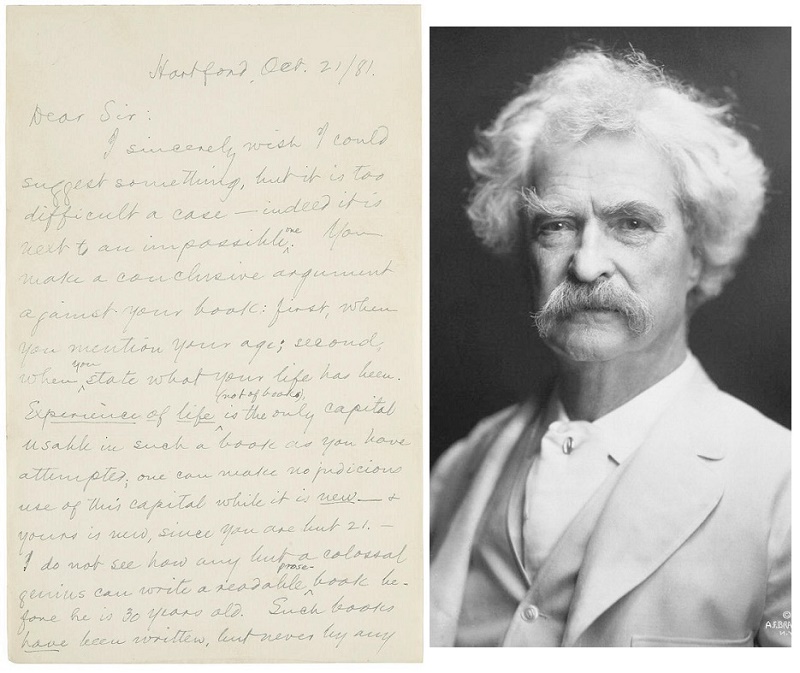 Hartford, Oct. 21/81.
Dear Sir:
I sincerely wish I could
suggest something, but it is too
difficult a case — indeed it is
next to an impossible one. You
make a conclusive argument
against your book: first, when
you mention your age; second,
when you state what your life has been.
Experience of life (not of books), is the only capital
usable in such a book as you have
attempted; one can make no judicious
use of this capital while it is new — &
yours is new, since you are but 21. —
I do not see how any but a colossal
genius can write a readable prose-book be-
fore he is 30 years old. Such books
have been written, but never by any
©
A.F. BRA
N.Y.